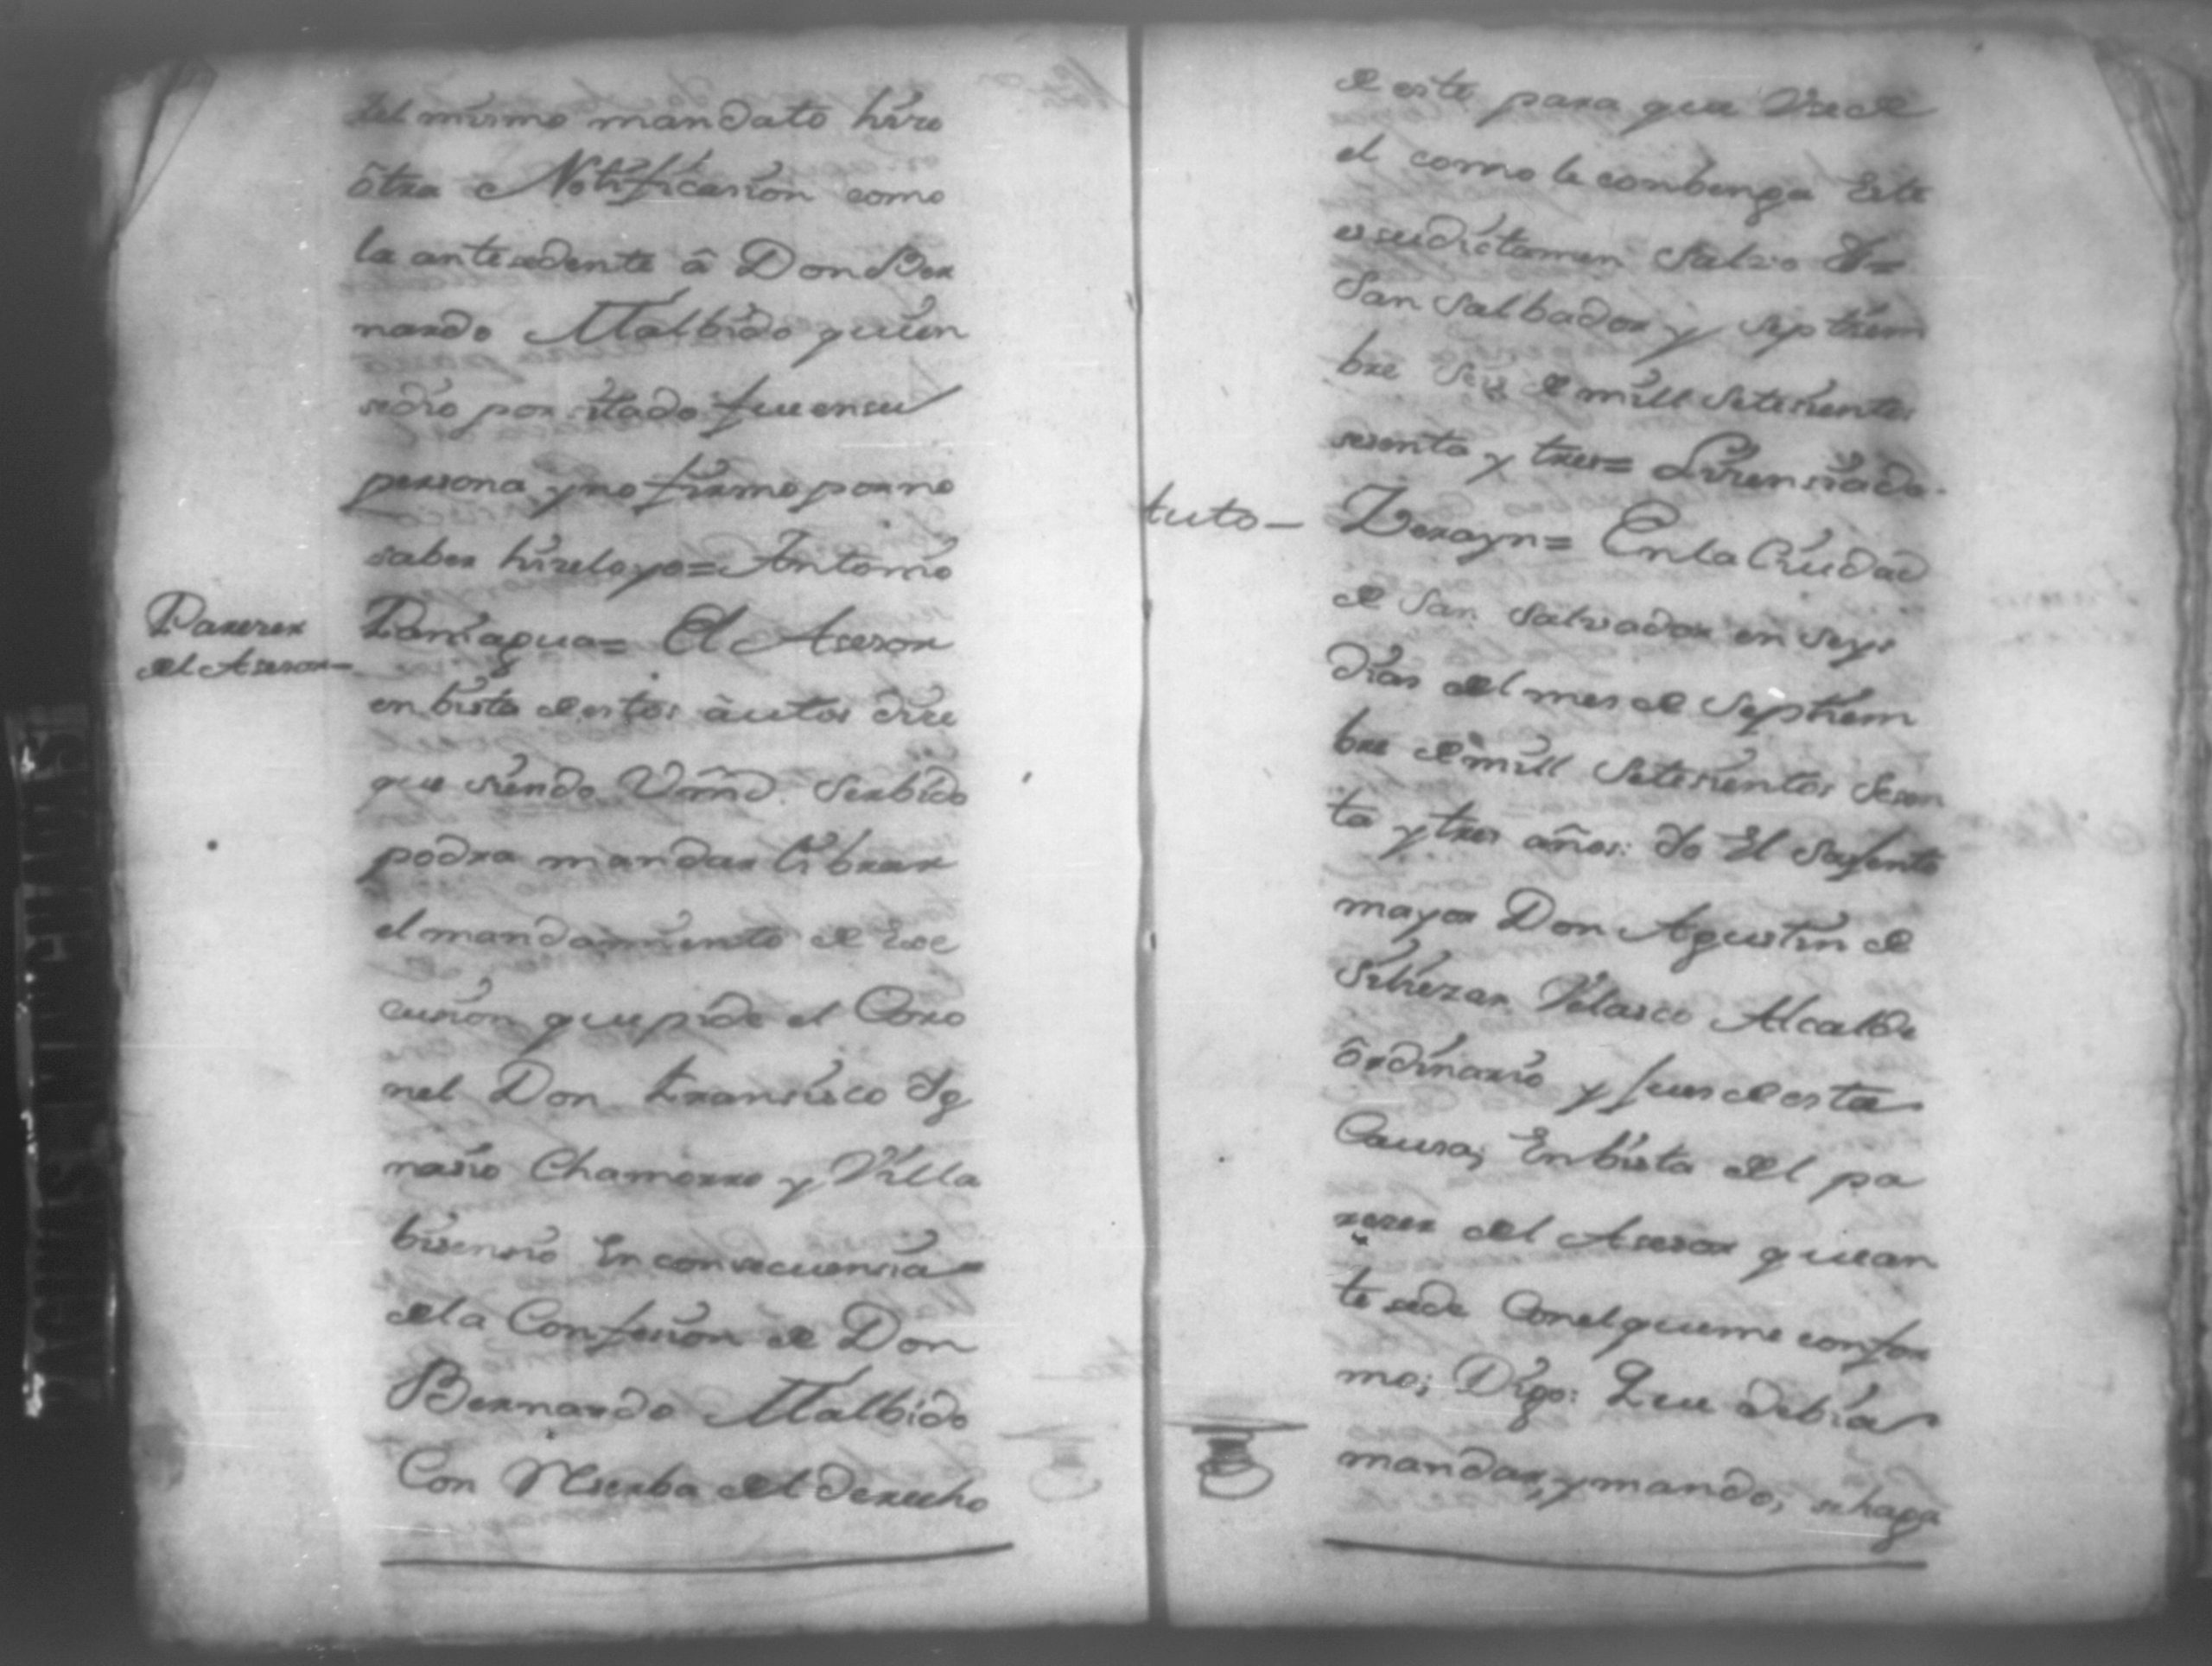 del mismo mandato hize
ôtra Notificasion como
la antesedente â Don Ber
nardo Malbido quien
sedio por sitado fue en su
persona y no firmo por no
saber hizelo yo = Antonio
Parerer
del Asesor—
Paniagua = El Asesor
en bista de estos àutos dise
que siendo Vmd. Serbido
podra mandar librar
el mandamiento de exe
cusion que pide el Coro
nel Don Fransisco Yg
nasio Chamorro y Villa
bisensio En consecuensia
de la Confesion de Don
Bernardo Malbido
Con Reserba del derecho
de este para que Use de
el como le conbenga Este
es su dictamen Salvo &ra
San Salbador y Septiem
bre seis de mill Setesientos
sesenta y tres = Lisensiado
tuto—
Zerayn = En la Ciudad
de San Salvador en seys
dias del mes de Septiem
bre de mill Setesientos Sesen
ta y tres años: Yo El Sargento
mayor Don Agustin de
Siliezar Velasco Alcalde
ôrdinario y Jues de esta
Causa; En bista del pa
rerer del Asesor que an
te sede Con el que me confor
mo; Digo: Que debia
mandar, y mando, se haga